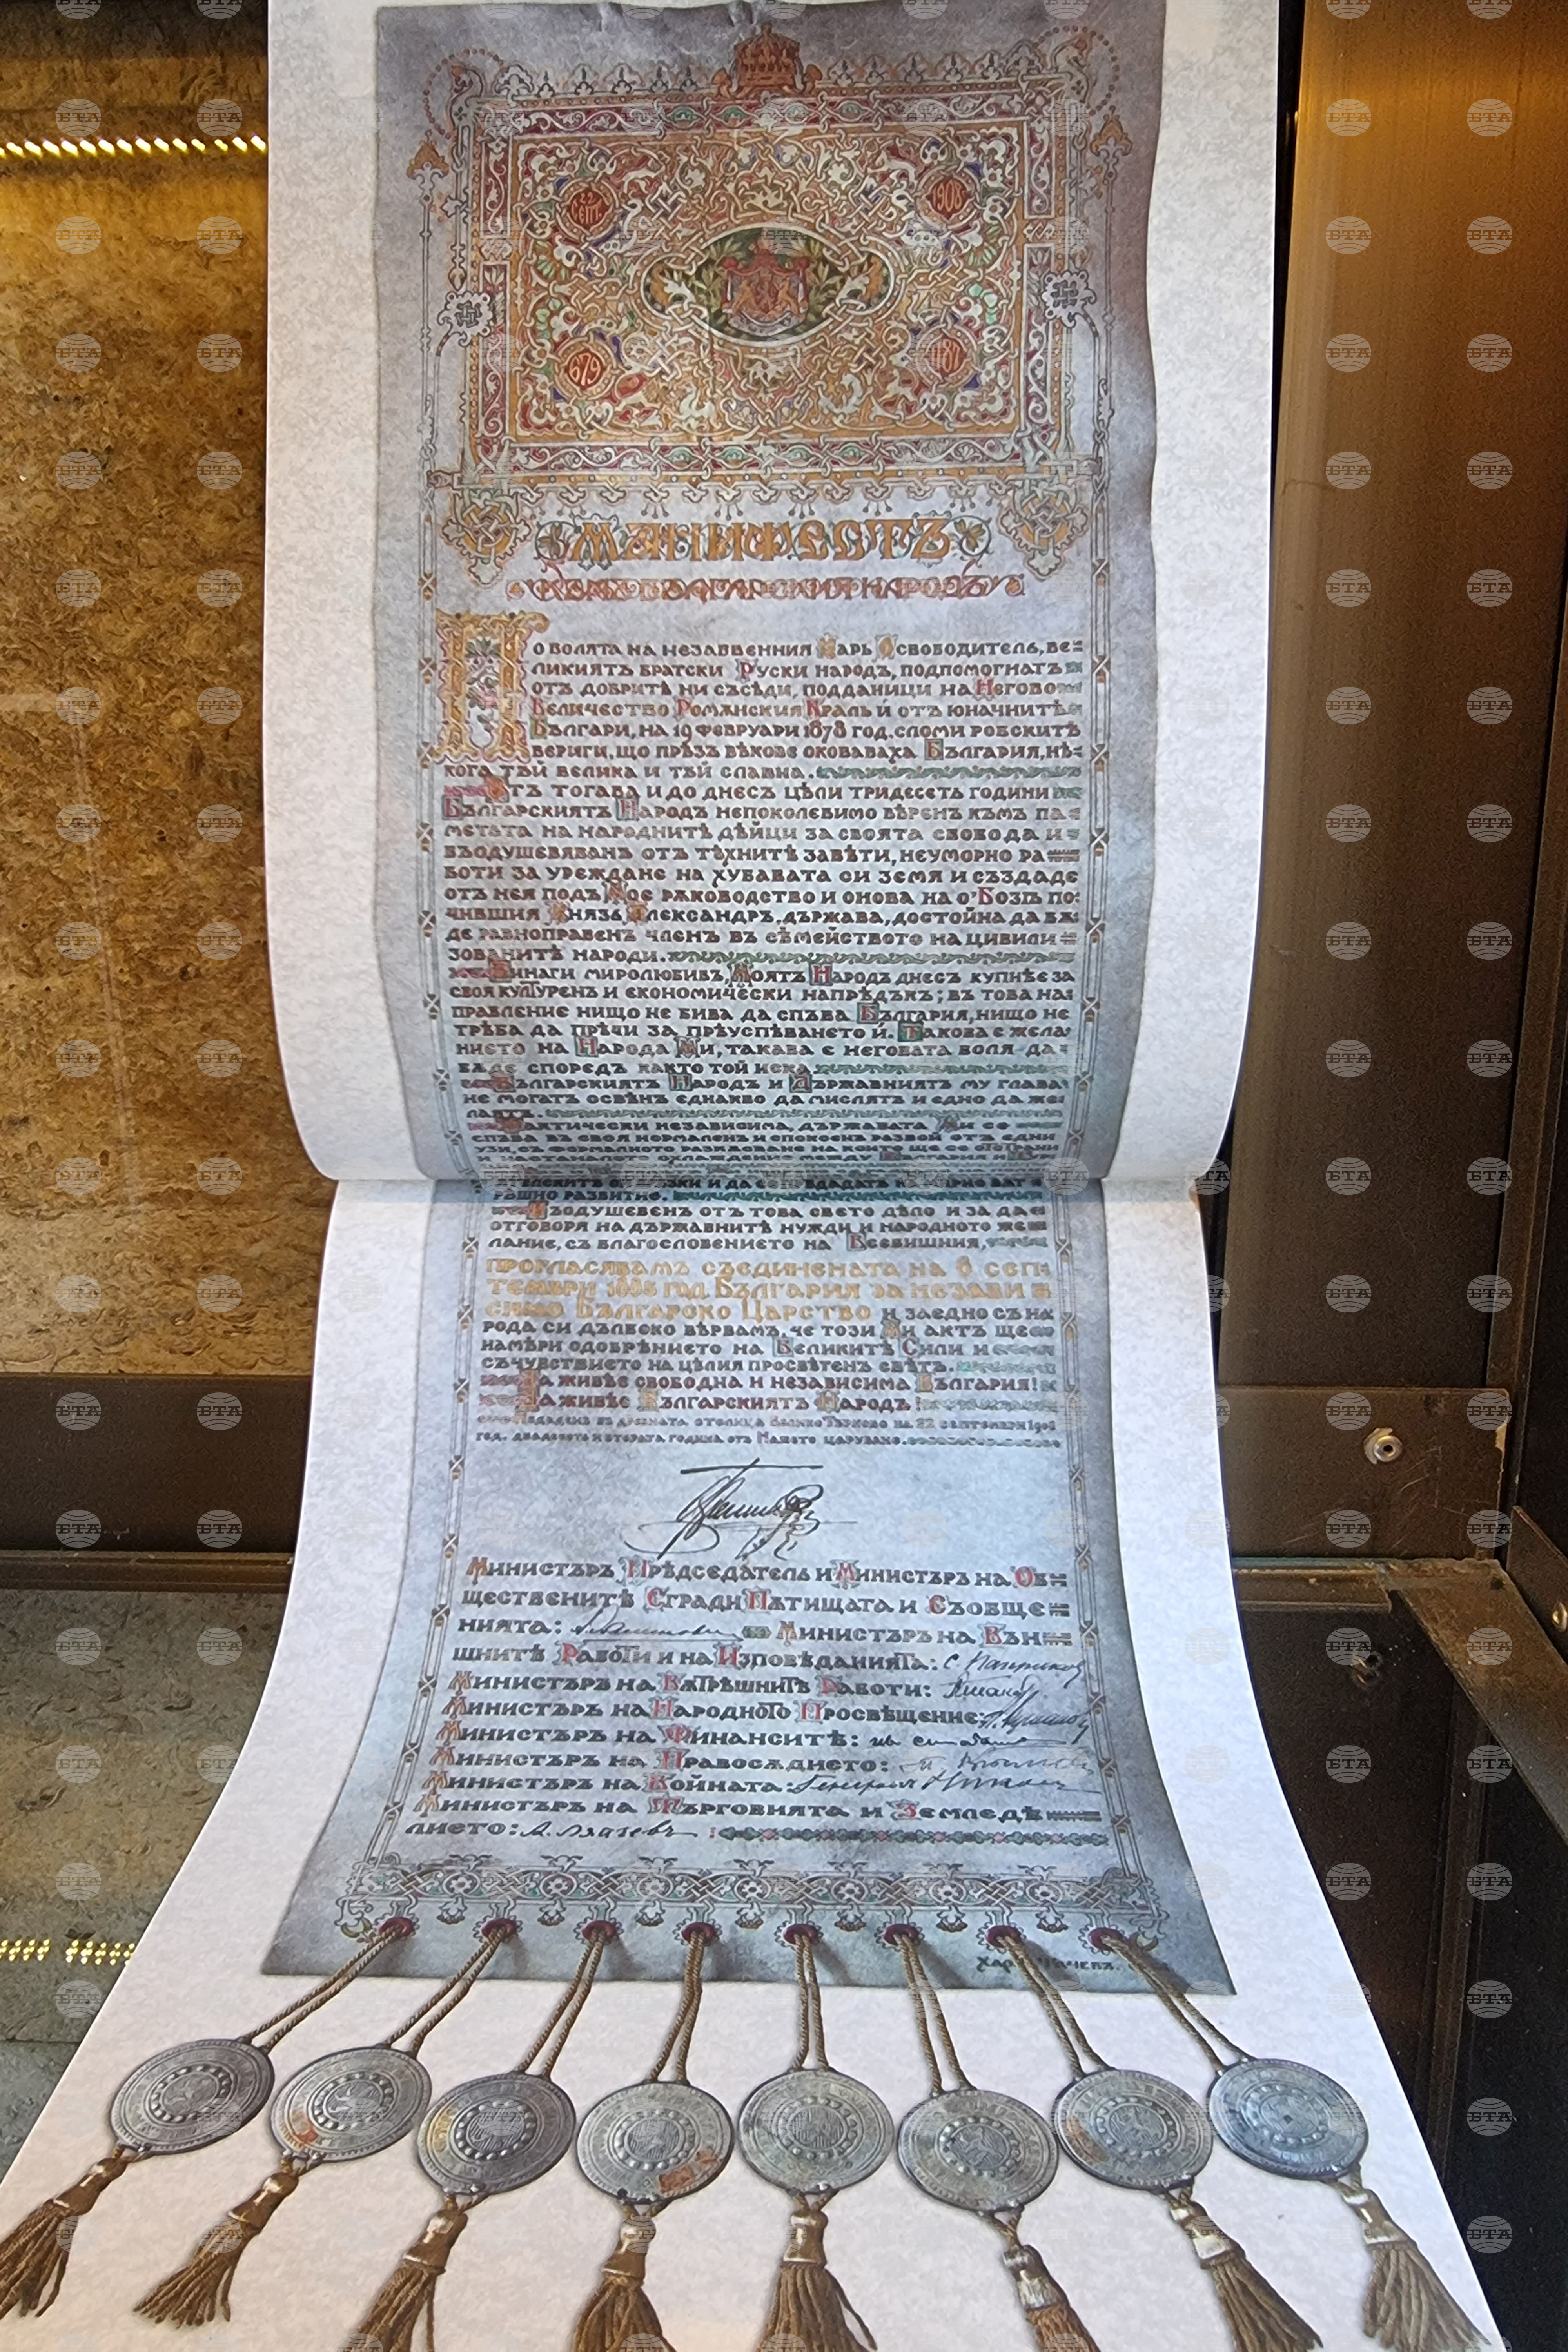 22 СЕПТ.
1908
679
МАНИФЕСТЪ
КЪМЪ БЪЛГАРСКИЯ НАРОДЪ
По волята на незабвенния Царь Освободитель, ве=
ликиятъ братски Руски народъ, подпомогнатъ
отъ добритѣ ни съсѣди, подданици на Негово
Величество Ромѫнския Краль и отъ юначнитѣ
Българи, на 19 февруари 1878 год. сломи робскитѣ
вериги, що прѣзъ вѣкове оковаваха България, нѣ=
кога тъй велика и тъй славна.
Отъ тогава и до днесъ цѣли тридесеть години
Българскиятъ Народъ непоколебимо вѣренъ къмъ па=
метьта на народнитѣ дѣйци за своята свобода и
въодушевяванъ отъ тѣхнитѣ завѣти, неуморно ра=
боти за уреждане на хубавата си земя и създаде
отъ нея подъ Мое рѫководство и онова на о'Бозѣ по=
чившия Князь Александръ, държава, достойна да бѫ=
де равноправенъ членъ въ сѣмейството на цивили=
зованитѣ народи.
Винаги миролюбивъ, Моятъ Народъ днесъ копнѣе за
своя културенъ и економически напрѣдъкъ; въ това на=
правление нищо не бива да спъва България, нищо не
трѣба да прѣчи за прѣуспѣването ѝ. Такова е жела=
нието на Народа Ми, такава е неговата воля - да
бѫде споредъ както той иска.
Българскиятъ Народъ и Държавниятъ му глава
не могатъ освѣнъ еднакво да мислятъ и едно да же=
лаятъ.
Фактически независима, държавата Ми се
спъва въ своя нормаленъ и спокоенъ развой отъ едни
узи, съ формалното разкѫсване на които ще се отстрани
и настаналото охлаждение между България и
развитие.
Въодушевенъ отъ това свето дѣло и за да
отговоря на държавнитѣ нужди и народното же=
лание, съ благословението на Всевишния,
ПРОГЛАСЯВАМЪ СЪЕДИНЕНАТА НА 6 СЕП=
ТЕМВРИ 1885 ГОД. БЪЛГАРИЯ ЗА НЕЗАВИ=
СИМО БЪЛГАРСКО ЦАРСТВО и заедно съ на=
рода си дълбоко вѣрвамъ, че този Ми актъ ще
намѣри одобрѣнието на Великитѣ Сили и
съчувствието на цѣлия просвѣтенъ свѣтъ.
Да живѣе свободна и независима България!
Да живѣе Българскиятъ Народъ!
Издаденъ въ древната столица Велико Търново на 22 септември 1908
год. двадесеть и втората година отъ Нашето царуване.
Министъръ Прѣдседатель и Министъръ на Об=
щественитѣ Сгради Пѫтищата и Съобще=
нията:
Министъръ на Вън=
шнитѣ Работи и на Изповѣданията: С. Паприков
Министъръ на Вѫтрѣшнитѣ Работи:
Министъръ на Народното Просвѣщение:
Министъръ на Финанситѣ:
Министъръ на Правосѫдието:
Министъръ на Войната:
Министъръ на Търговията и Земледѣ=
лието: А. Ляпчевъ
БТА